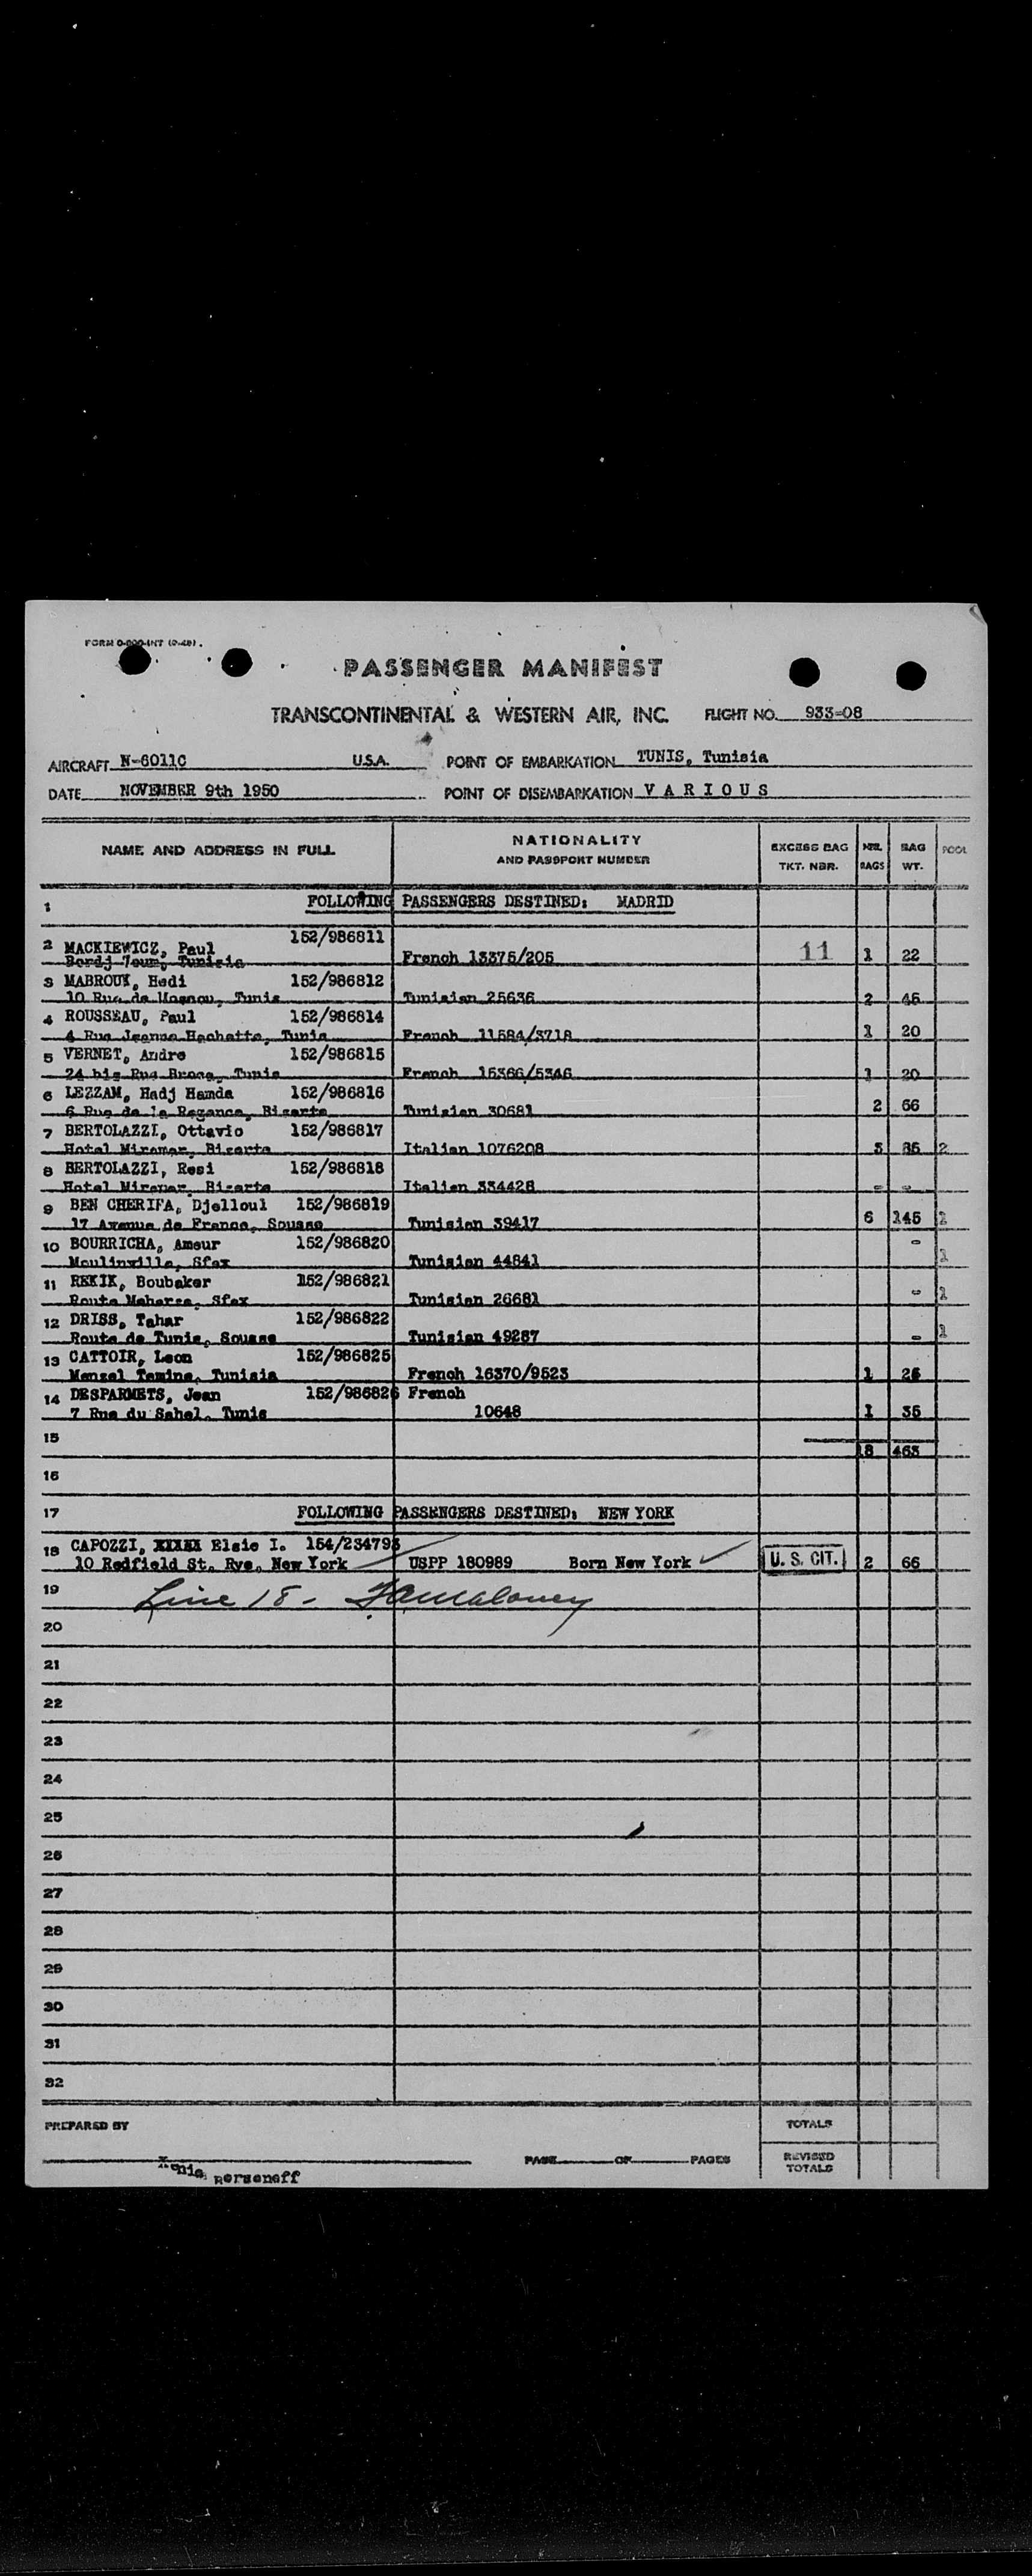 FORM O-800-INT (9-49).
PASSENGER MANIFEST
TRANSCONTINENTAL & WESTERN AIR, INC. FLIGHT NO. 933-08
AIRCRAFT N-6011C U.S.A. POINT OF EMBARKATION TUNIS, Tunisia
DATE NOVEMBER 9th 1950 POINT OF DISEMBARKATION V A R I O U S
NAME AND ADDRESS IN FULL NATIONALITY AND PASSPORT NUMBER EXCESS BAG TKT. NBR. NBR. BAGS BAG WT. POOL
1 FOLLOWING PASSENGERS DESTINED: MADRID
2 MACKIEWICZ, Paul 152/986811
Bordj Toum, Tunisia French 13375/205 11 1 22
3 MABROUK, Hedi 152/986812
10 Rue de Tunis Tunisian 25636 2 45
4 ROUSSEAU, Paul 152/986814
4 Rue Jeanne Hachette, Tunis French 11584/3718 1 20
5 VERNET, Andre 152/986815
24 bis Rue Tunis French 15366/5346 1 20
6 LEZZAM, Hadj Hamda 152/986816
6 Rue de la Regence, Bizerte Tunisian 30681 2 66
7 BERTOLAZZI, Ottavio 152/986817
Hotel Miramar, Bizerte Italian 1076208 2
8 BERTOLAZZI, Resi 152/986818
Hotel Miramar, Bizerte Italian 334428 - -
9 BEN CHERIFA, Djelloul 152/986819
17 Avenue de France, Sousse Tunisian 39417 6 145 1
10 BOURRICHA, Ameur 152/986820
Moulinville, Sfax Tunisian 44841 - 1
11 REKIK, Boubaker 152/986821
Route Maharss, Sfax Tunisian 26681 - 1
12 DRISS, Tahar 152/986822
Route de Tunis, Sousse Tunisian 49287 - 1
13 CATTOIR, Leon 152/986825
Menzel Temine, Tunisia French 16370/9523 1
14 DESPARMETS, Jean 152/986826 French
7 Rue du Sahel, Tunis 10648 1 35
15 18 463
16
17 FOLLOWING PASSENGERS DESTINED: NEW YORK
18 CAPOZZI, Elsie I. 154/234793
10 Redfield St. Rye, New York USPP 180989 Born New York U. S. CIT. 2 66
19 Line 18 - Maloney
20
21
22
23
24
25
26
27
28
29
30
31
32
PREPARED BY TOTALS
PAGE OF PAGES REVISED TOTALS
Xenia Berseneff